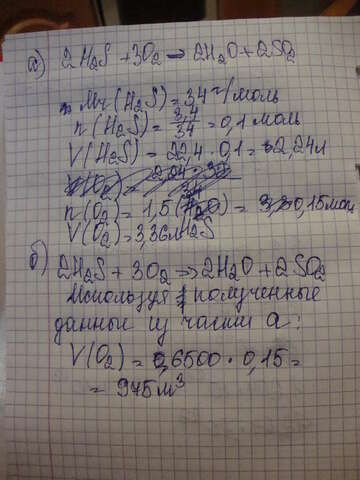 а) 2H₂S + 3O₂ → 2H₂O + 2SO₂
Mr(H₂S) = 34 г/моль
n(H₂S) = 3,4/34 = 0,1 моль
V(H₂S) = 22,4 · 0,1 = 2,24 л
n(O₂) = 1,5 (H₂S) = 0,15 моль
V(O₂) = 3,36 л
б) 2H₂S + 3O₂ → 2H₂O + 2SO₂
Используя полученные
данные из части а:
V(O₂) = 6500 · 0,15 =
= 975 м³